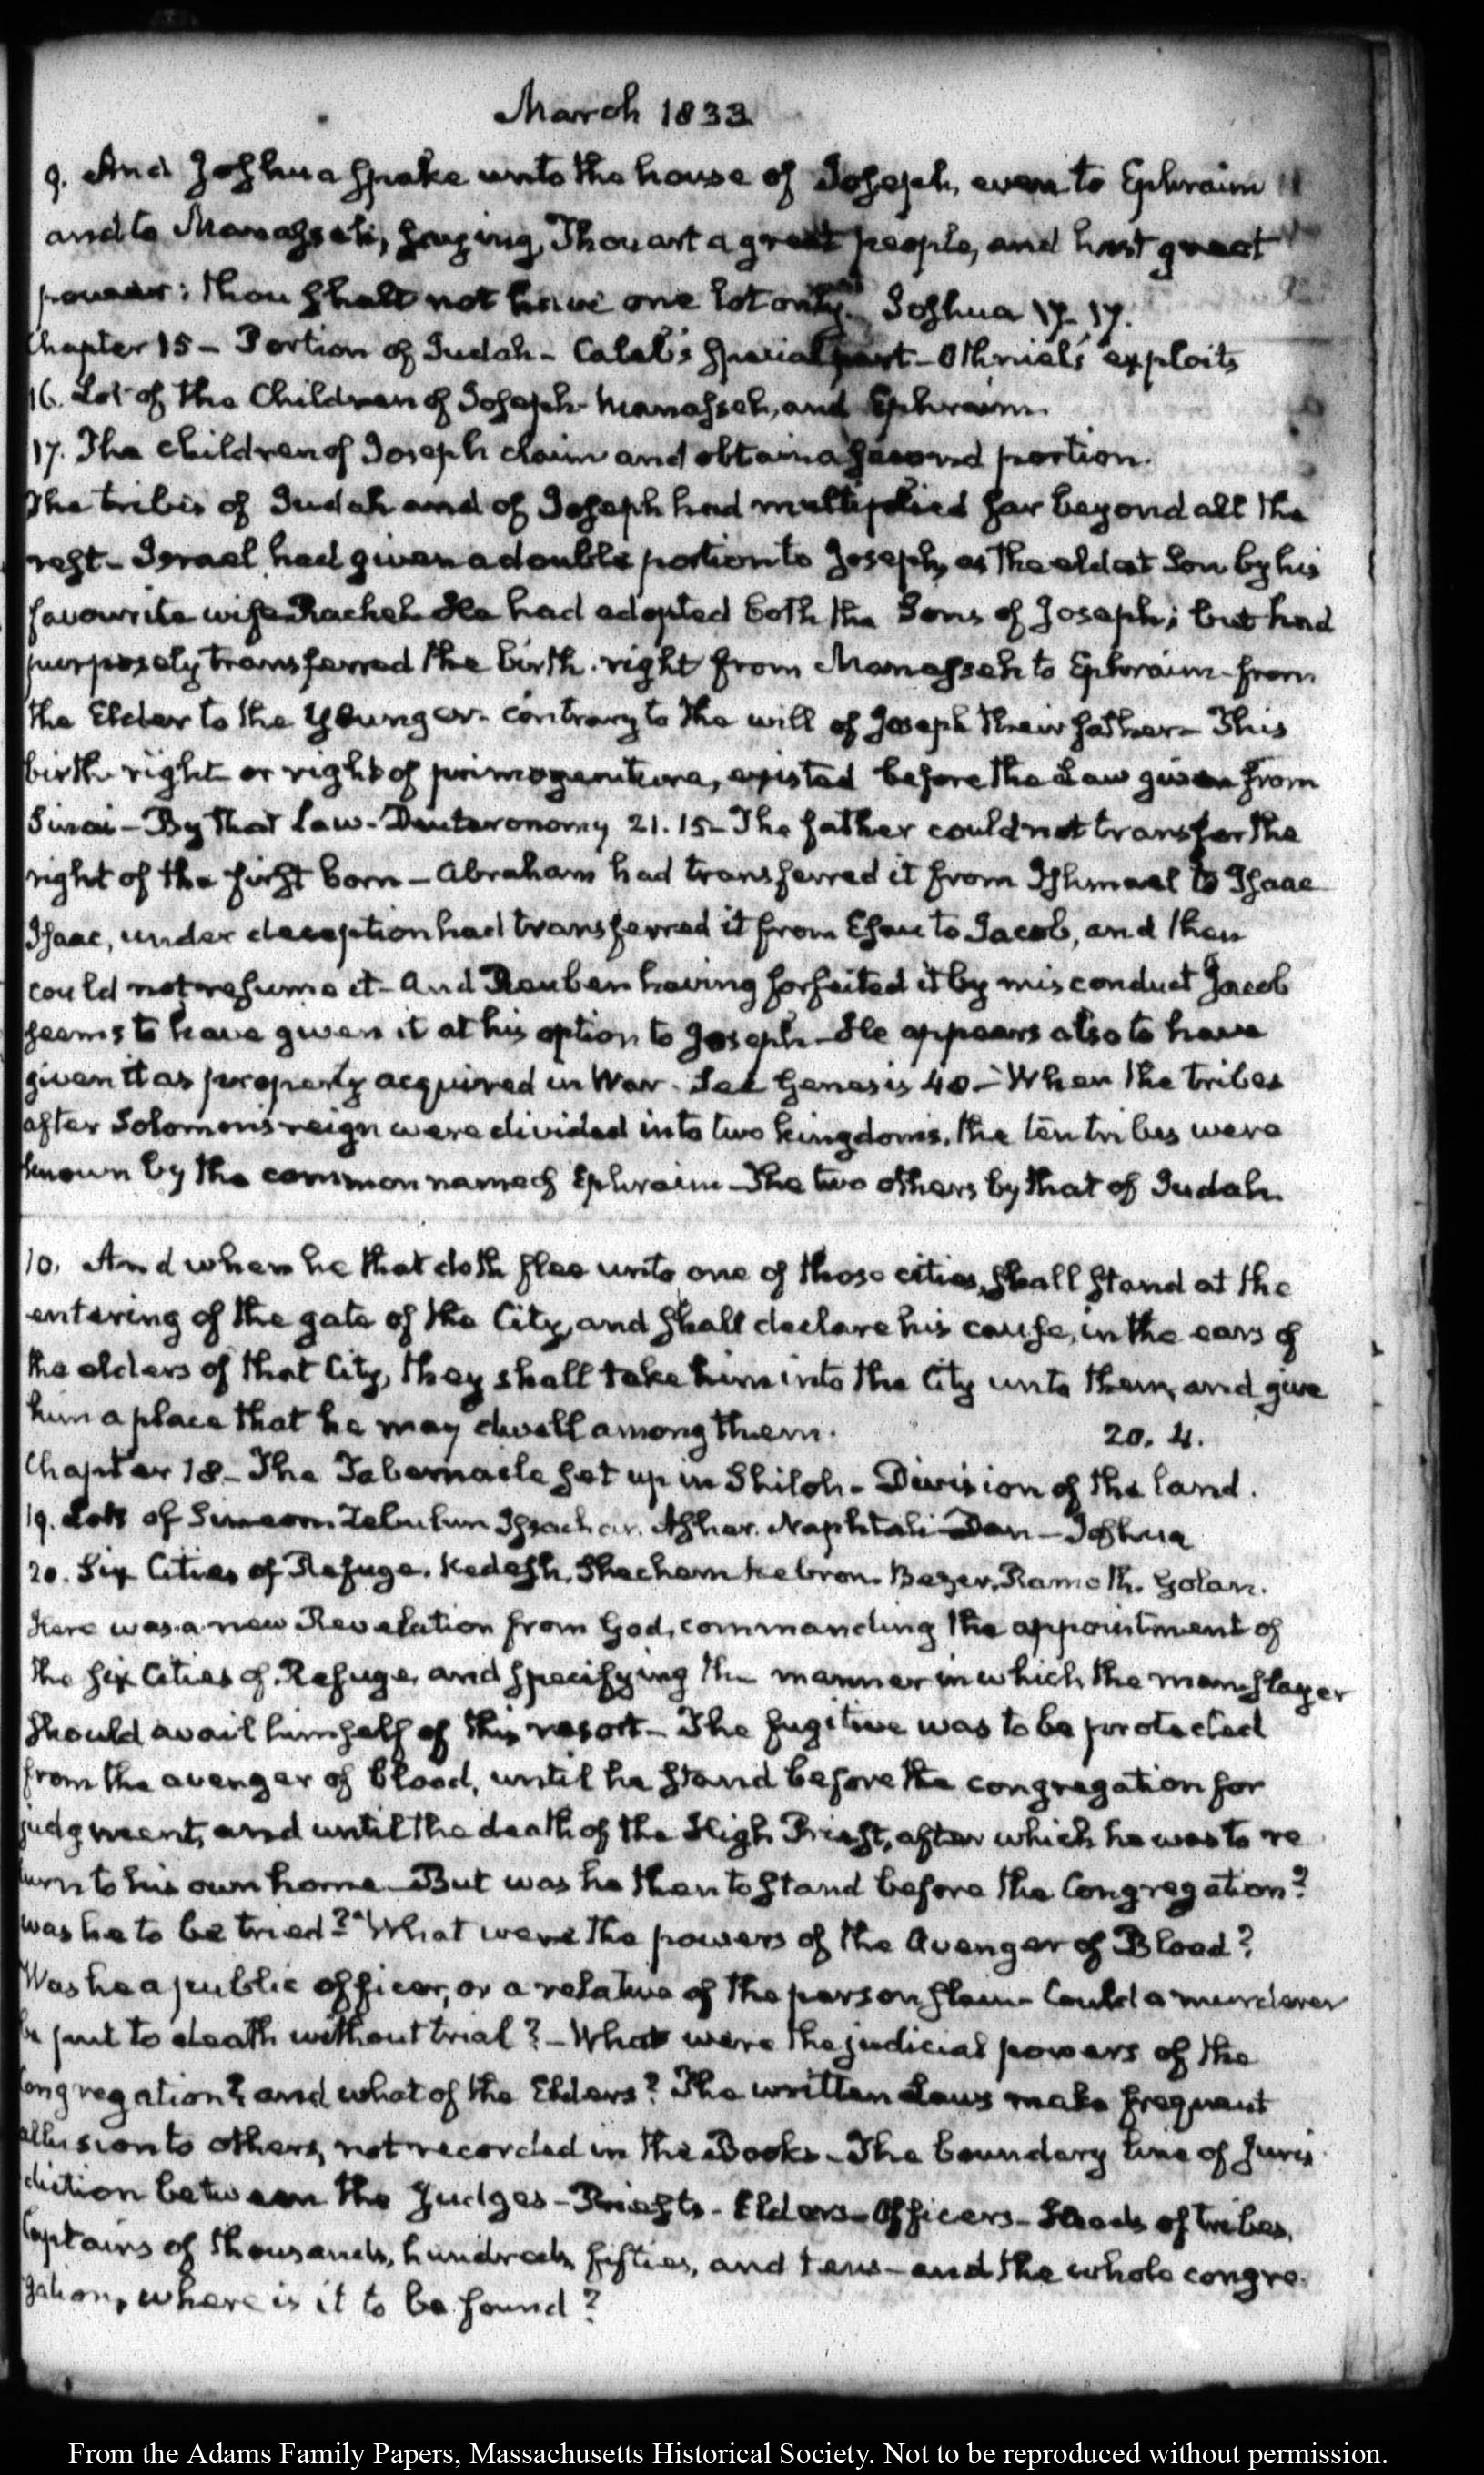 March 1833
9. And Joshua spake unto the house of Joseph, even to Ephraim
and to Manasseh, saying, Thou art a great people, and hast great
power: thou shalt not have one lot only. Joshua 17. 17.
Chapter 15 – Portion of Judah – Caleb's special part – Othniel's exploits
16. Lot of the Children of Joseph – Manasseh, and Ephraim.
17. The children of Joseph claim and obtain a second portion.
The tribes of Judah and of Joseph had multiplied far beyond all the
rest – Israel had given a double portion to Joseph, as the eldest Son by his
favourite wife Rachel. He had adopted both the Sons of Joseph; but had
purposely transferred the birth-right from Manasseh to Ephraim – from
the Elder to the Younger – contrary to the will of Joseph their father – This
birth right or right of primogeniture, existed before the Law given from
Sinai – By that Law – Deuteronomy 21. 15 – The father could not transfer the
right of the first born – Abraham had transferred it from Ishmael to Isaac
Isaac, under deception had transferred it from Esau to Jacob, and then
could not resume it – And Reuben having forfeited it by misconduct Jacob
seems to have given it at his option to Joseph – He appears also to have
given it as property acquired in War. See Genesis 48 – When the tribes
after Solomon's reign were divided into two kingdoms, the ten tribes were
known by the common name of Ephraim – The two others by that of Judah.
10. And when he that doth flee unto one of those cities, shall stand at the
entering of the gate of the City, and shall declare his cause, in the ears of
the elders of that City, they shall take him into the City unto them, and give
him a place that he may dwell among them. 20. 4.
Chapter 18 – The Tabernacle set up in Shiloh – Division of the land.
19. Lots of Simeon. Zebulun Issachar. Asher. Naphtali – Dan – Joshua
20. Six Cities of Refuge. Kedesh. Shechem Hebron. Bezer. Ramoth. Golan.
Here was a new Revelation from God, commanding the appointment of
the six Cities of Refuge, and specifying the manner in which the man-slayer
should avail himself of this resort – The fugitive was to be protected
from the avenger of blood, until he stand before the congregation for
judgment, and until the death of the High Priest, after which he was to re
turn to his own home – But was he then to stand before the Congregation?
was he to be tried? – What were the powers of the Avenger of Blood?
Was he a public officer, or a relative of the person slain – Could a murderer
be put to death without trial? – What were the judicial powers of the
Congregation? and what of the Elders? The written Laws make frequent
allusion to others, not recorded in the Books – The boundary line of Juris
diction between the Judges – Priests – Elders – Officers – Heads of tribes,
Captains of thousands, hundreds, fifties, and tens – and the whole congre-
gation, where is it to be found?
From the Adams Family Papers, Massachusetts Historical Society. Not to be reproduced without permission.